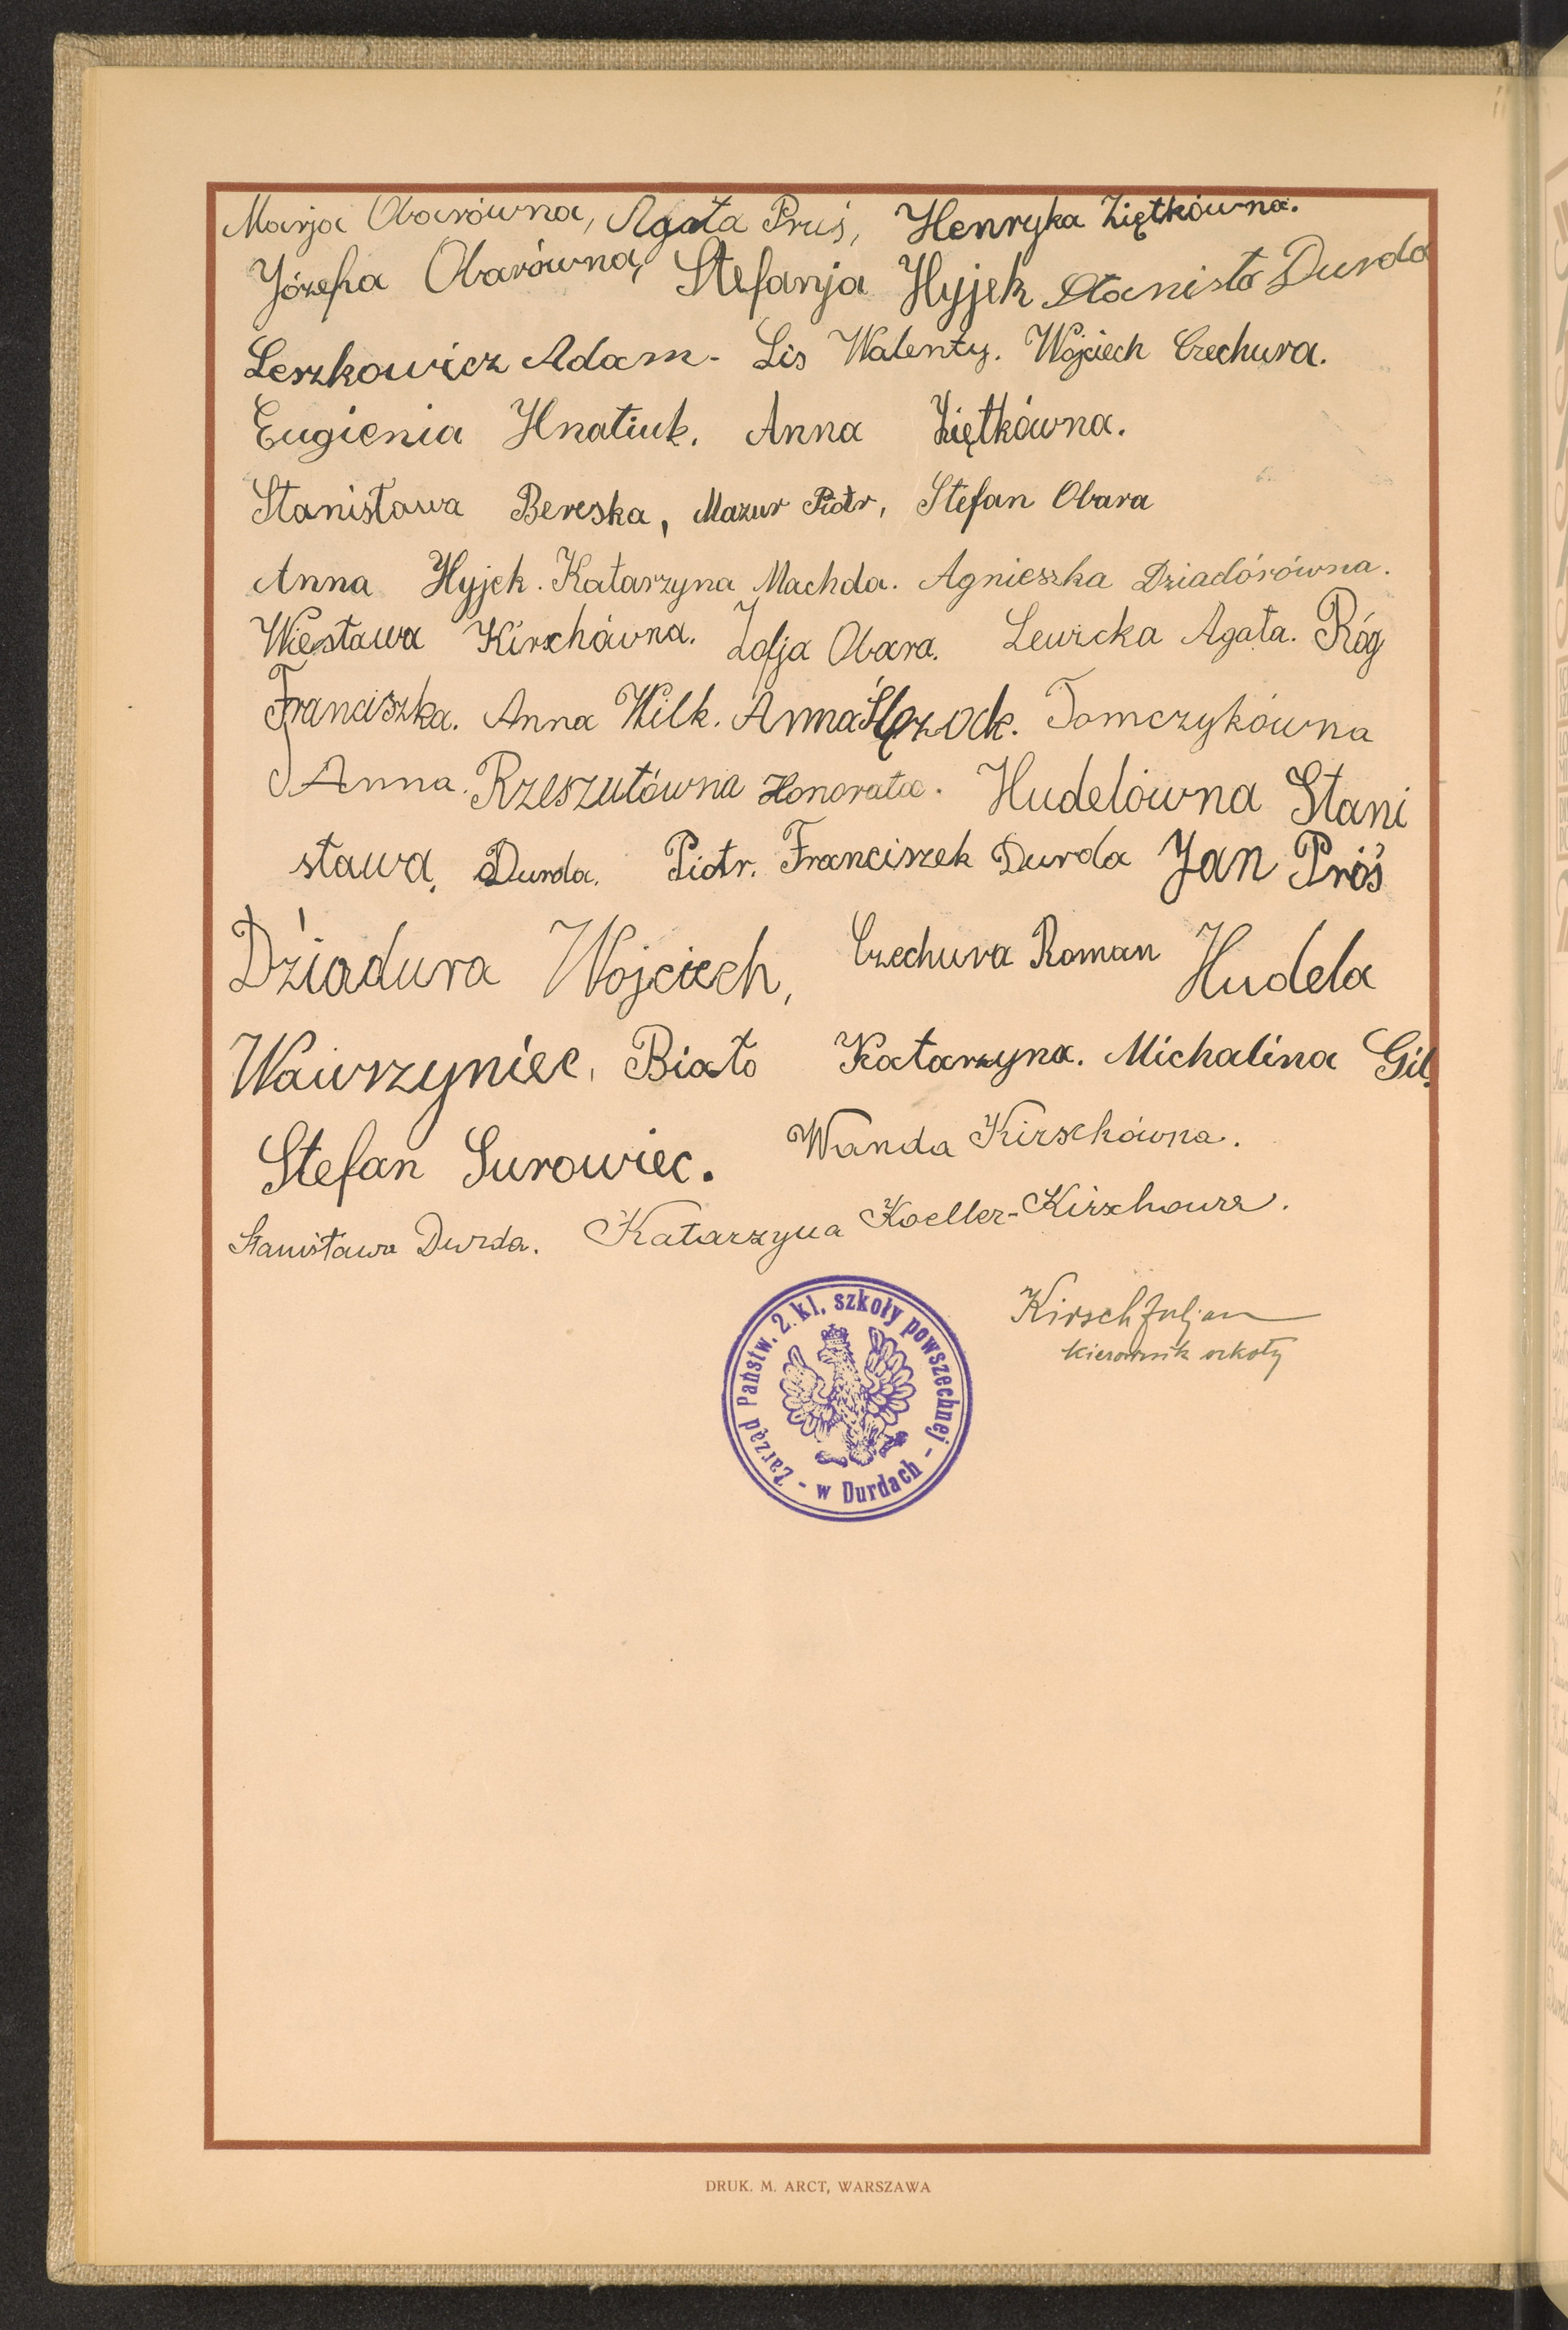 Marja Obarówna, Agata Pruś, Henryka Ziętkówna.
Józefa Obarówna, Stefanja Hyjek Stanisło Durda
Leszkowicz Adam. Lis Walenty. Wojciech Czechura.
Eugienia Hnatiuk. Anna Ziętkówna.
Stanisława Bereska, Mazur Piotr, Stefan Obara
Anna Hyjek. Katarzyna Machda. Agnieszka Dziadórówna.
Wiesława Kirschówna. Zofja Obara. Lewicka Agata. Róg
Franciszka. Anna Wilk. Anna Ślęzock. Tomczykówna
Anna. Rzeszutówna Honorata. Hudelówna Stani
sława, Durda. Piotr. Franciszek Durda Jan Próś
Dziadura Wojciech, Czechura Roman Hudela
Wawrzyniec, Biało Katarzyna. Michalina Gil.
Stefan Surowiec. Wanda Kirschówna.
Stanisława Durda. Katarzyna Koeller-Kirschowa.
Kirsch Juljan
kierownik szkoły
Zarząd Państw. 2. kl, szkoły powszechnej - w Durdach -
DRUK. M. ARCT, WARSZAWA